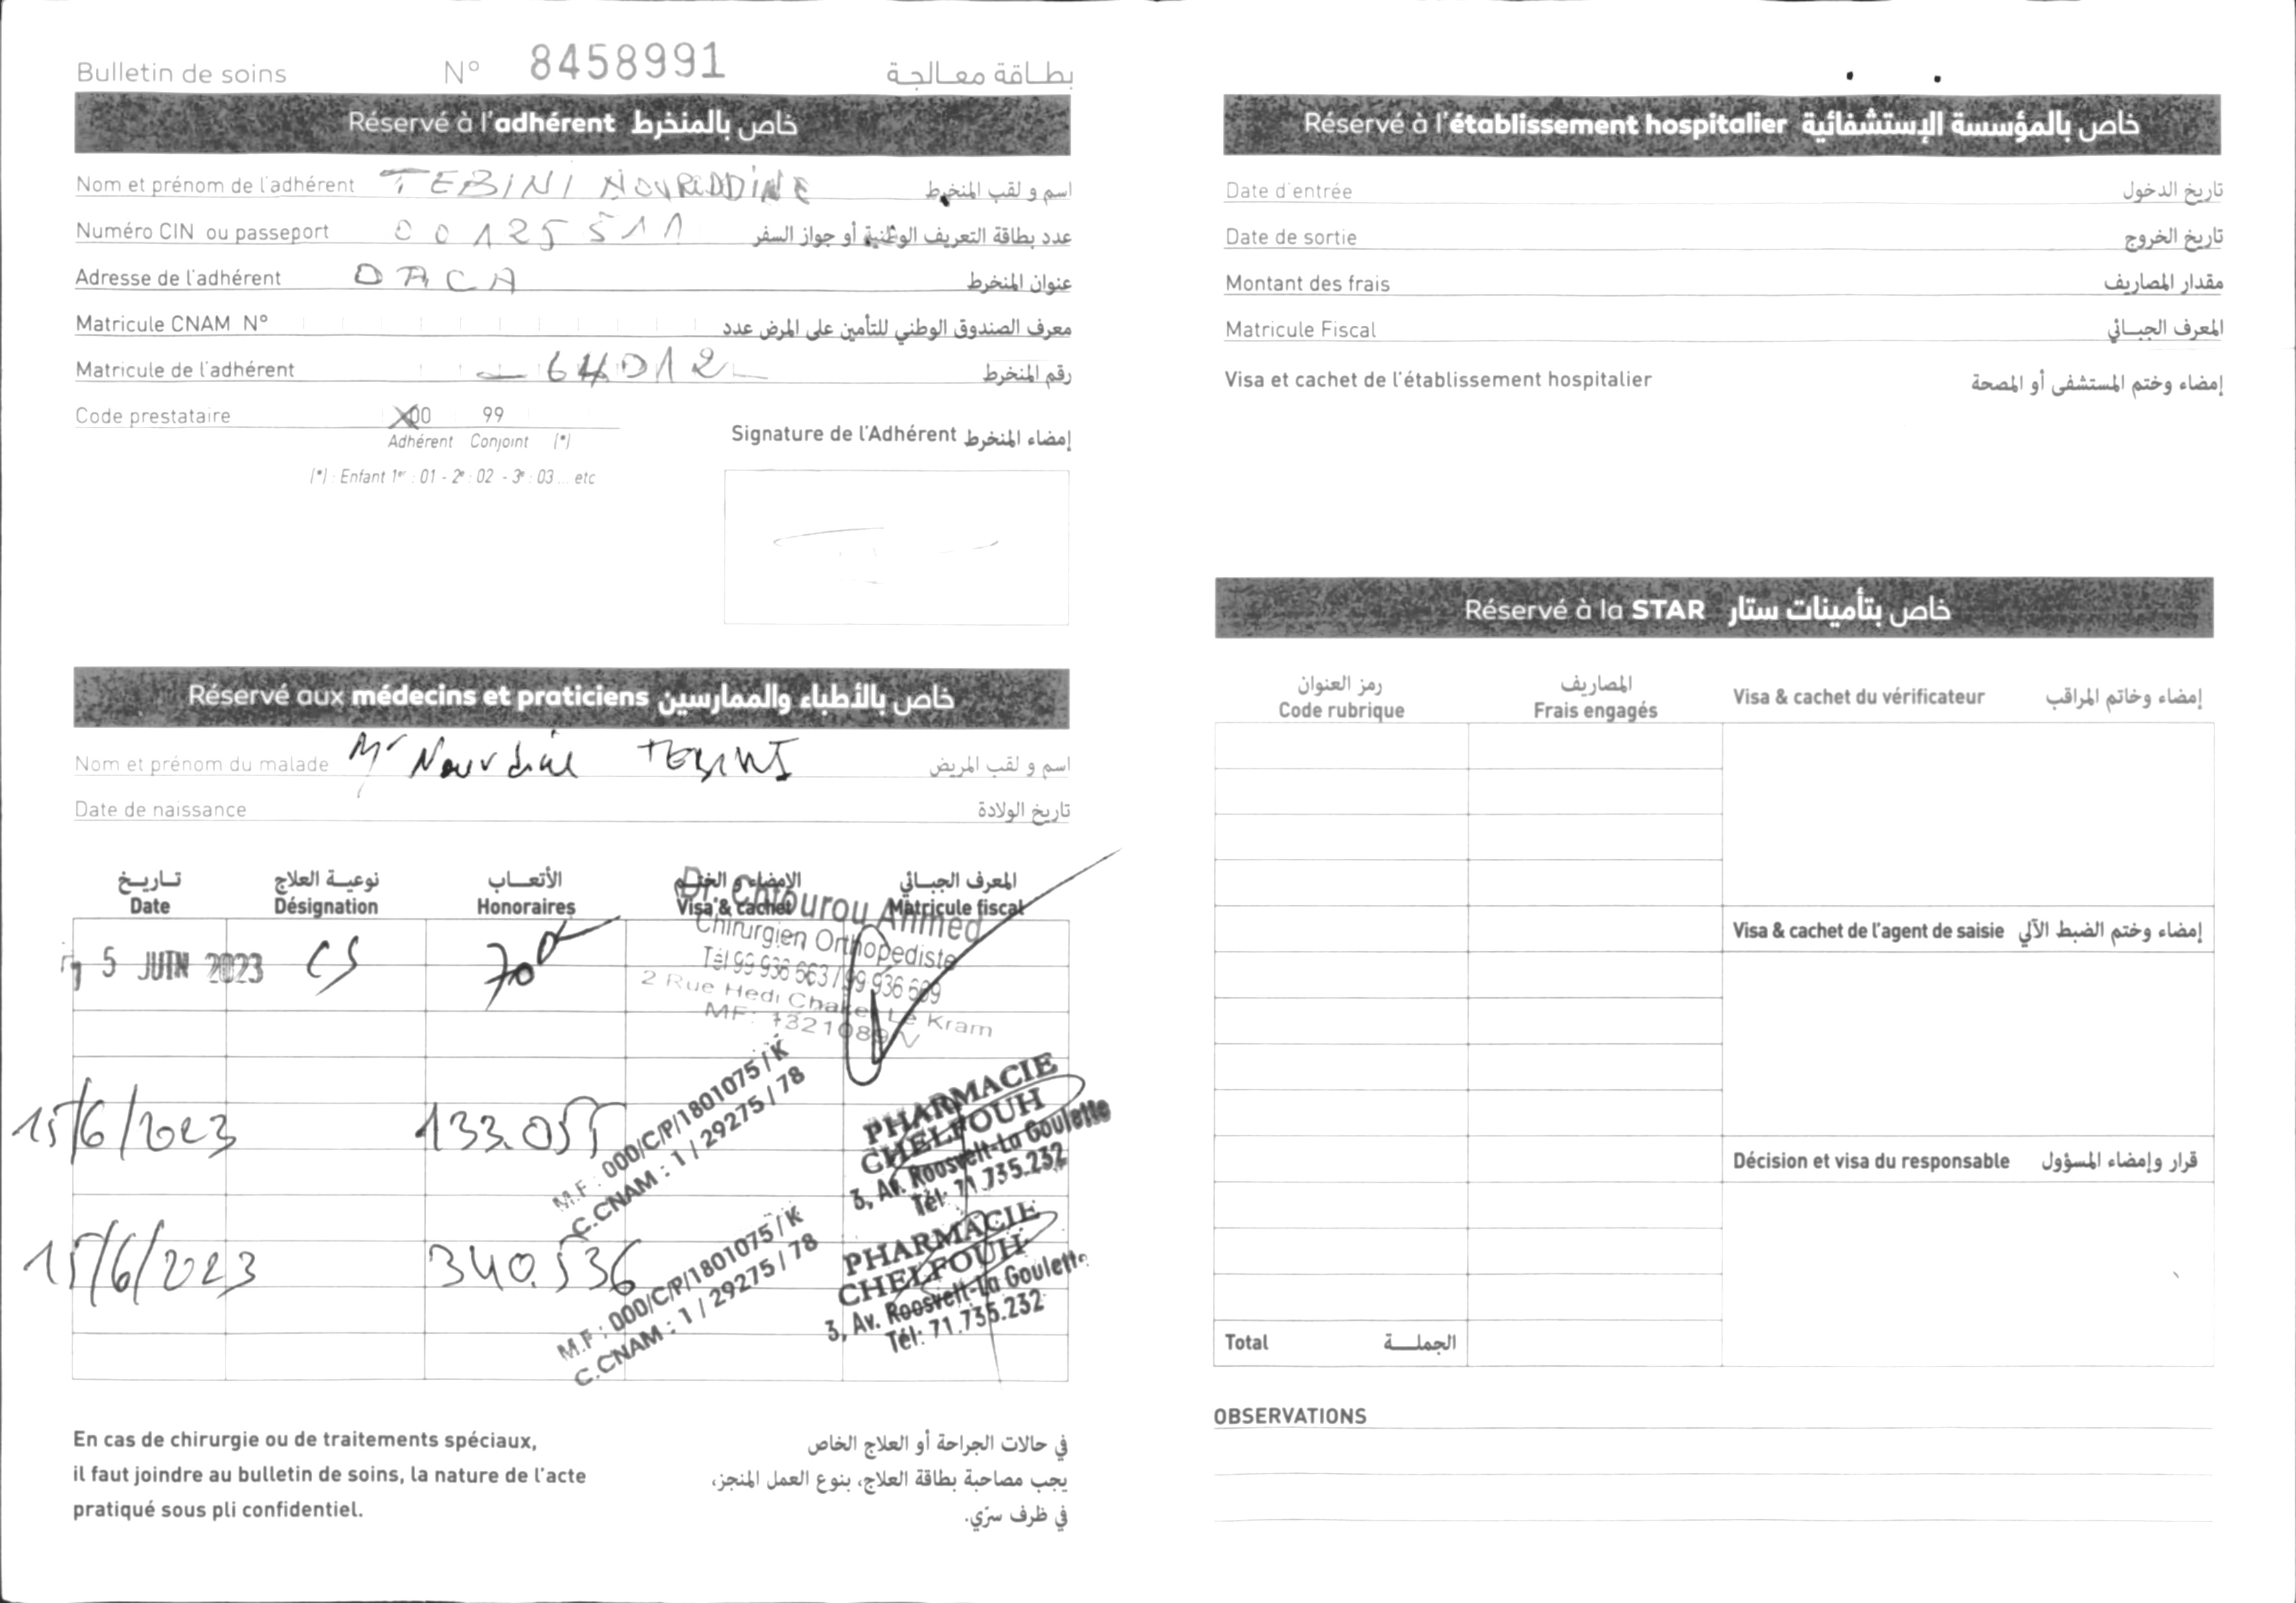 Bulletin de soins N° 8458991 بطاقة معالجة
Réservé à l'adhérent خاص بالمنخرط
Nom et prénom de l'adhérent TEBINI NOUREDDINE اسم و لقب المنخرط
Numéro CIN ou passeport 00125511 عدد بطاقة التعريف الوطنية أو جواز السفر
Adresse de l'adhérent DACA عنوان المنخرط
Matricule CNAM N° معرف الصندوق الوطني للتأمين على المرض عدد
Matricule de l'adhérent 64012 رقم المنخرط
Code prestataire 00 99
Adhérent Conjoint (*)
(*) : Enfant 1er : 01 - 2e : 02 - 3e : 03 ... etc
Signature de l'Adhérent إمضاء المنخرط
Réservé aux médecins et praticiens خاص بالأطباء والممارسين
Nom et prénom du malade Mr TEBINI اسم و لقب المريض
Date de naissance تاريخ الولادة
تاريخ نوعية العلاج الأتعاب الإمضاء و الختم المعرف الجبائي
Date Désignation Honoraires Visa & cachet Matricule fiscal
5 JUIN 2023 CS 70
Dr. Chtourou Ahmed
Chirurgien Orthopédiste
Tél 99 936 663 / 99 936 669
2 Rue Hedi Chaker Le Kram
MF: 1321089 V
15/6/2023 133.055
M.F : 000/C/P/1801075 / K
C.CNAM : 1 / 29275 / 78
PHARMACIE
CHELFOUH
3, Av. Roosvelt-La Goulette
Tél: 71.735.232
15/6/2023 340.536
M.F : 000/C/P/1801075 / K
C.CNAM : 1 / 29275 / 78
PHARMACIE
CHELFOUH
3, Av. Roosvelt-La Goulette
Tél: 71.735.232
En cas de chirurgie ou de traitements spéciaux,
il faut joindre au bulletin de soins, la nature de l'acte
pratiqué sous pli confidentiel.
في حالات الجراحة أو العلاج الخاص
يجب مصاحبة بطاقة العلاج، بنوع العمل المنجز،
في ظرف سرّي.
Réservé à l'établissement hospitalier خاص بالمؤسسة الإستشفائية
Date d'entrée تاريخ الدخول
Date de sortie تاريخ الخروج
Montant des frais مقدار المصاريف
Matricule Fiscal المعرف الجبائي
Visa et cachet de l'établissement hospitalier إمضاء وختم المستشفى أو المصحة
Réservé à la STAR خاص بتأمينات ستار
رمز العنوان المصاريف
Code rubrique Frais engagés
Visa & cachet du vérificateur إمضاء وخاتم المراقب
Visa & cachet de l'agent de saisie إمضاء وختم الضبط الآلي
Décision et visa du responsable قرار وإمضاء المسؤول
Total الجملة
OBSERVATIONS